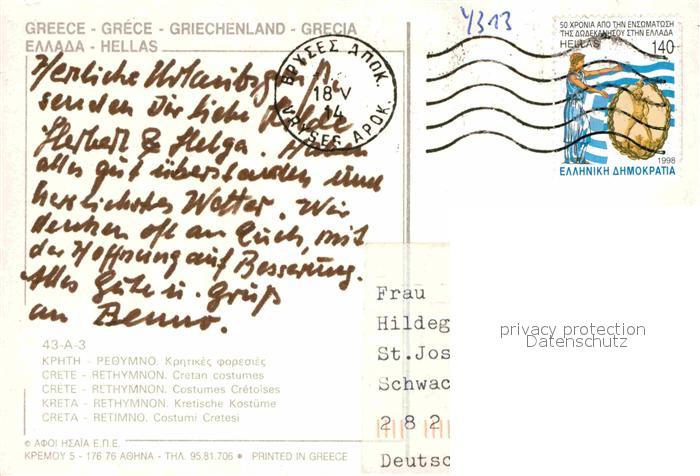 GREECE - GRÈCE - GRIECHENLAND - GRECIA
ΕΛΛΑΔΑ - HELLAS
4313
ΒΡΥΣΕΣ ΑΠΟΚ.
18 V
14
VRYSES APOK.
50 ΧΡΟΝΙΑ ΑΠΟ ΤΗΝ ΕΝΣΩΜΑΤΩΣΗ
ΤΗΣ ΔΩΔΕΚΑΝΗΣΟΥ ΣΤΗΝ ΕΛΛΑΔΑ
HELLAS 140
1998
ΕΛΛΗΝΙΚΗ ΔΗΜΟΚΡΑΤΙΑ
Herzliche Urlaubsgrüße
senden Dir liebe Hilde
Herbert & Helga. Haben
alles gut überstanden und
herrlichstes Wetter. Wir
denken oft an Euch, mit
der Hoffnung auf Besserung.
Alles Gute u. Gruß
an Benno.
43-A-3
ΚΡΗΤΗ - ΡΕΘΥΜΝΟ. Κρητικές φορεσιές
CRETE - RETHYMNON. Cretan costumes
CRETE - RETHYMNON. Costumes Crétoises
KRETA - RETHYMNON. Kretische Kostüme
CRETA - RETIMNO. Costumi Cretesi
© ΑΦΟΙ ΗΣΑΪΑ Ε.Π.Ε.
ΚΡΕΜΟΥ 5 - 176 76 ΑΘΗΝΑ - ΤΗΛ. 95.81.706 • PRINTED IN GREECE
Frau
Hildeg
St.Jos
Schwac
2 8 2
Deutsc
privacy protection
Datenschutz